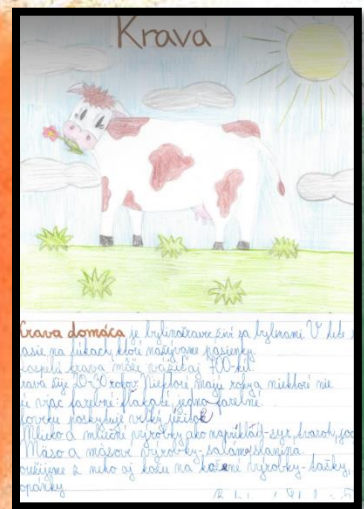 Krava
Krava domáca je bylinožravec živí sa bylinami V lete
na lúkach ktoré nazývame pasienky
krava môže vážiť aj 700 kíl
krava žije 20-30 rokov Niektoré majú rohya niektoré nie
viac farebné-fľakaté, jedno farebné
poskytuje veľký úžitok
Mlieko a mliečne výrobky ako napríklad-syr, tvaroh,
Mäso a mäsové výrobky-saláma, slanina
z neho aj kožu na kožené výrobky-tašky,
opánky